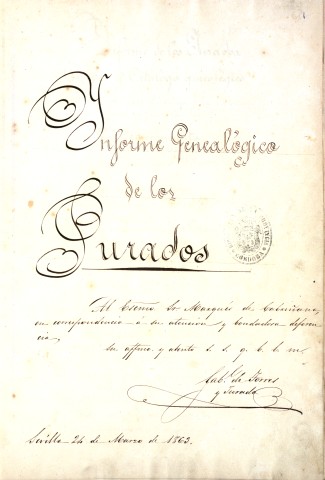 Informe Genealógico
de los
Jurados
Al Exćmo Sr Marqués de Cabriñana,
en correspondencia á su atencion y bondadosa deferen-
cia,
su affmo. y atento s. s. q. b. s. m.
Gab.l de Torres
y Jurado
Sevilla 24 de Marzo de 1863.